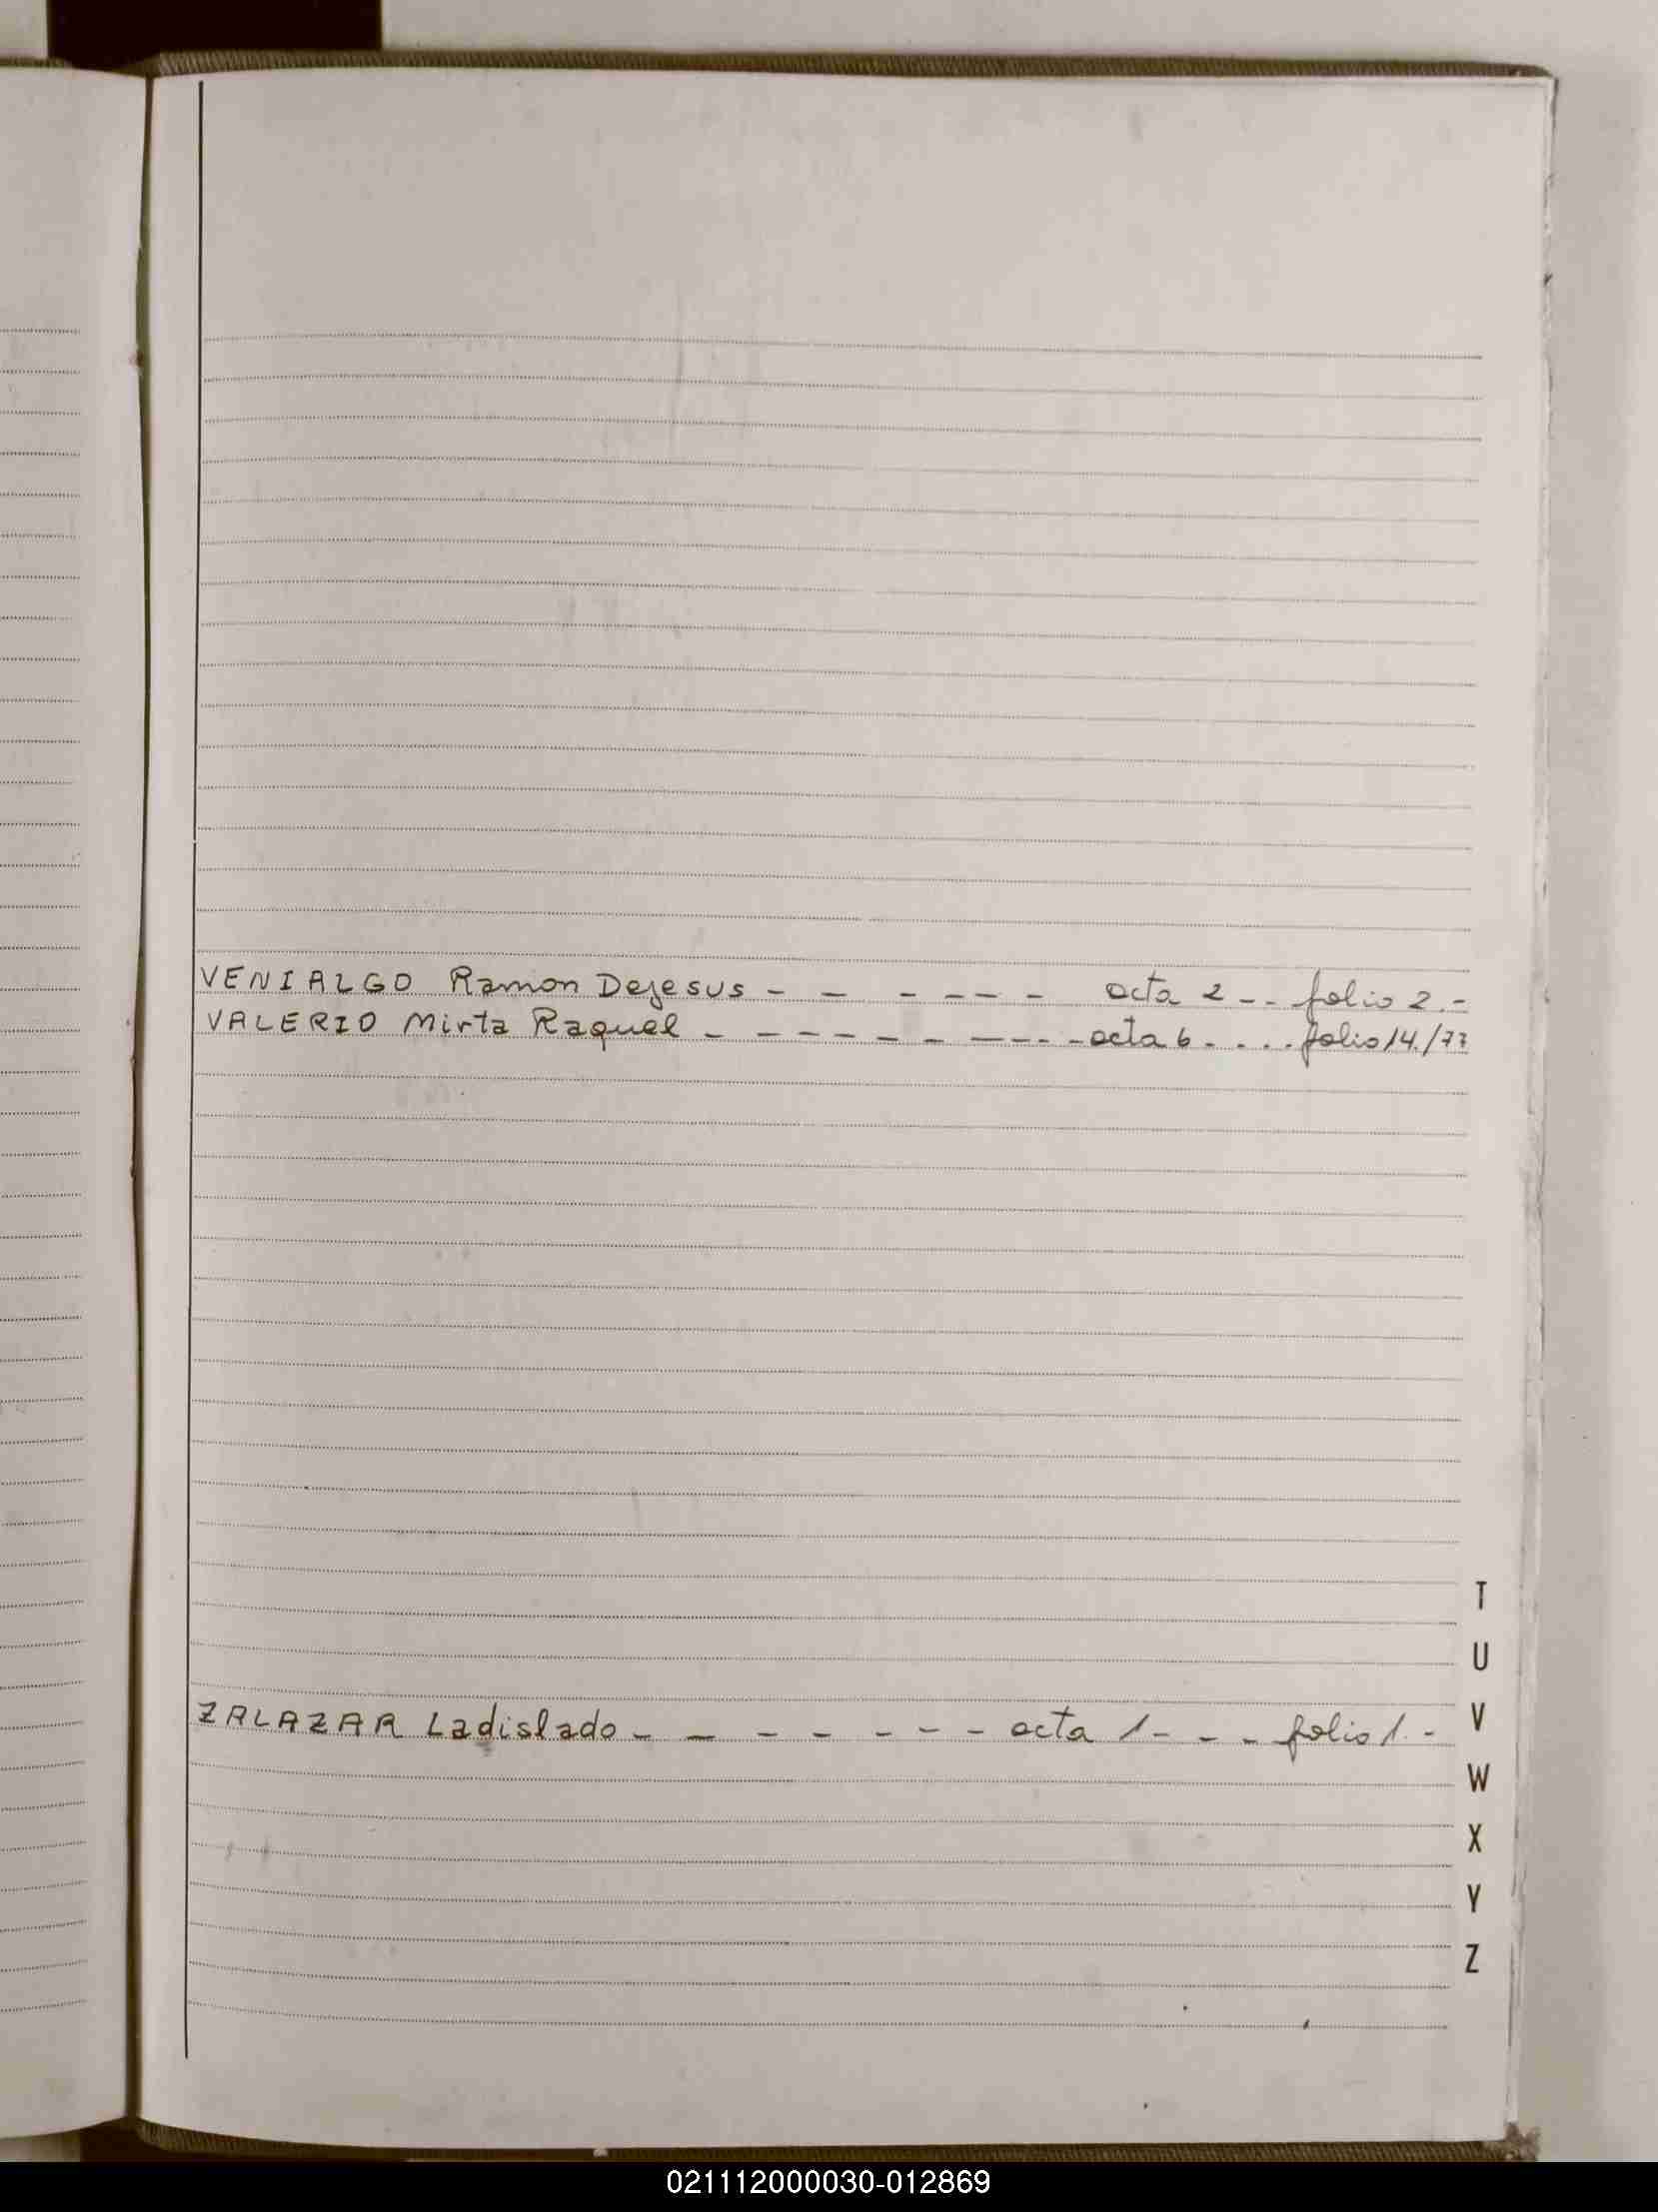 VENIALGO Ramon Dejesus - - - - - - - acta 2 - - folio 2. -
VALERIO Mirta Raquel - - - - - - - - - - acta 6 - . . . folio 14./77
T
U
ZALAZAR Ladislado - - - - - - - - acta 1 - - - folio 1. -
V
W
X
Y
Z
021112000030-012869